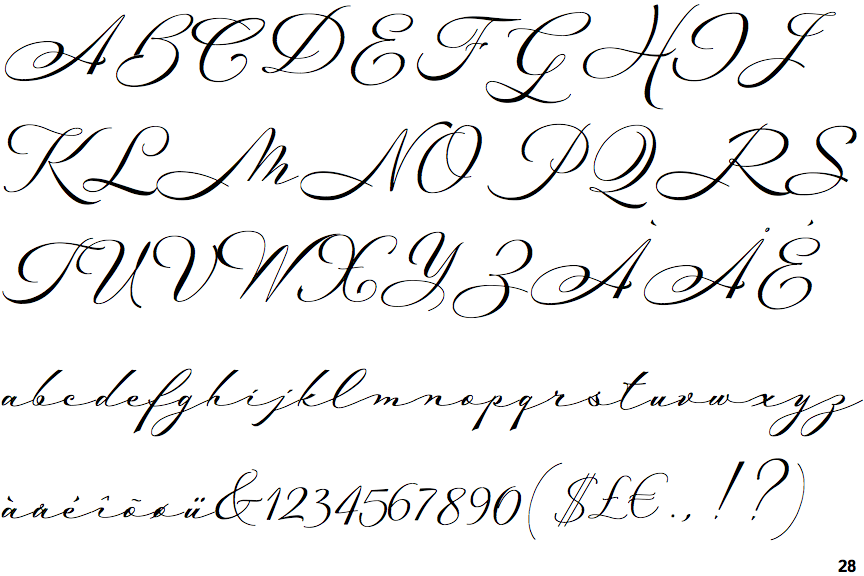 ABCDEFGHIJ
KLMNOPQRS
TUVWXYZÀÅÉ
abcdefghijklmnopqrstuvwxyz
àåéîõøü&1234567890($£€.,!?)
28